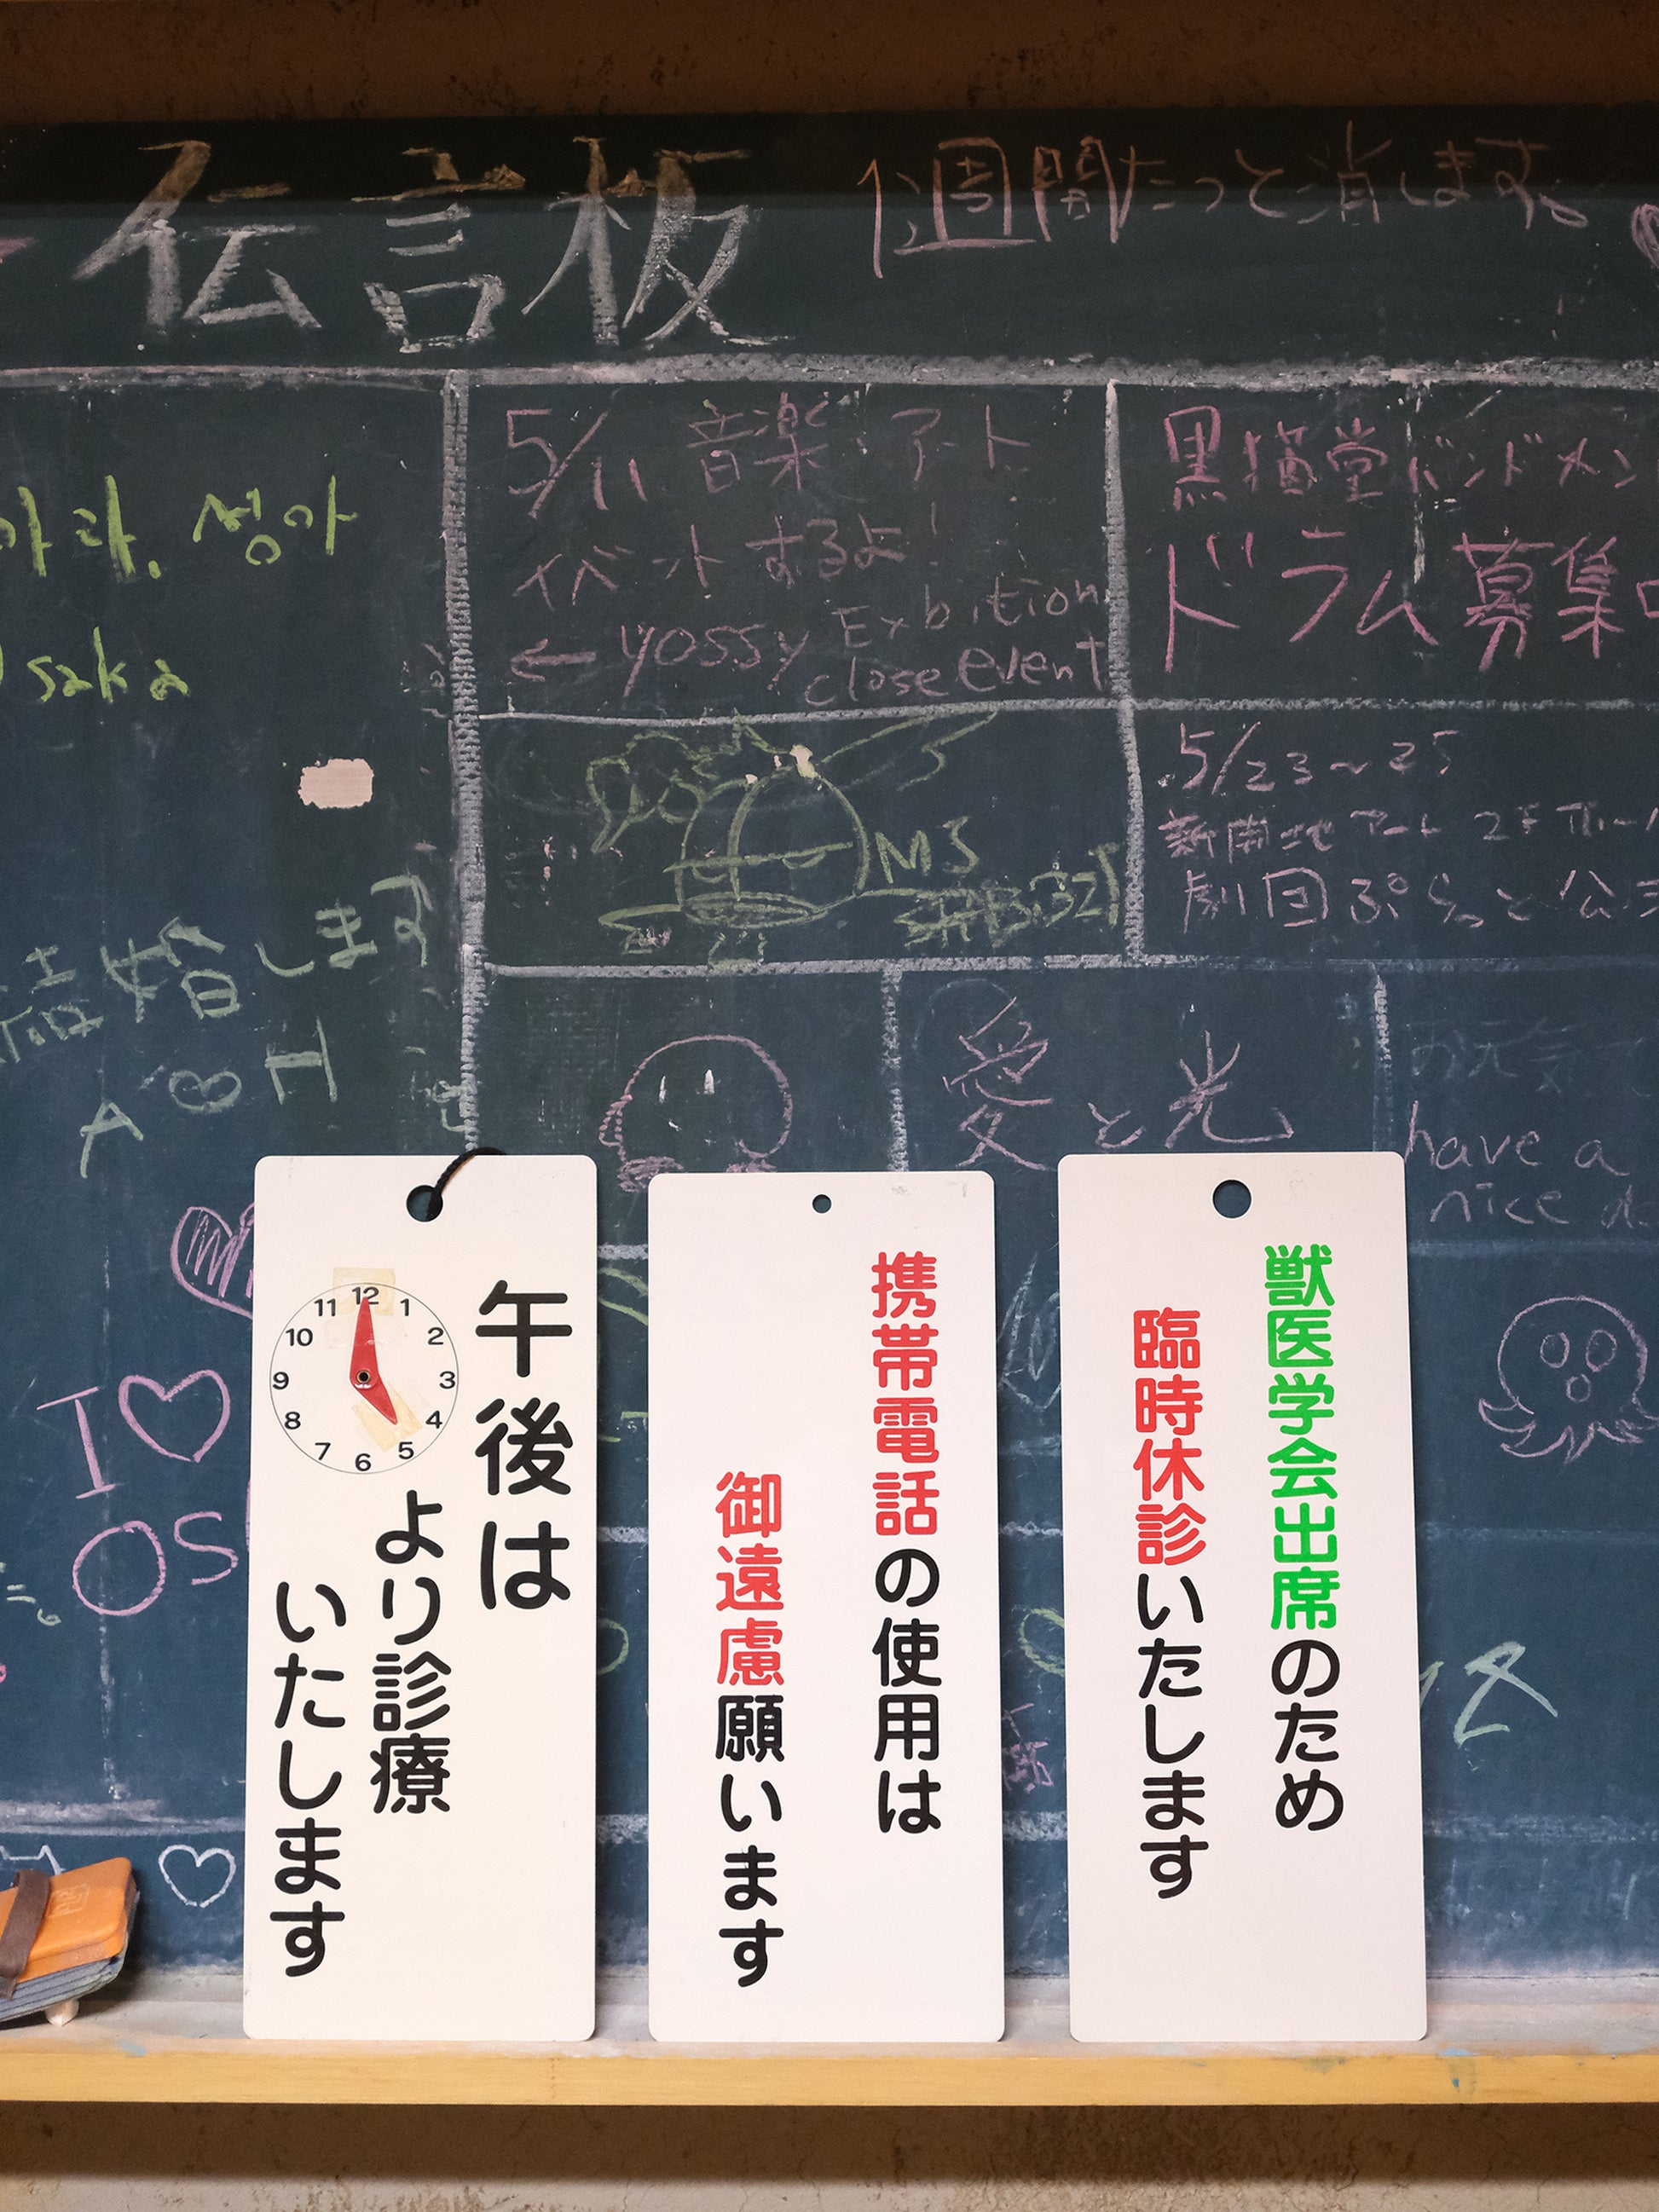 伝言板
1週間たつと消します。
마라. 성아
saka
5/11 音楽・アート
イベントするよ!
← yossy Exbition
close event
黒猫堂バンドメン
ドラム募集中
M3
5/23~25
新開地アート
劇団ぷらっと公
結婚します
A ♡ H
愛と光
have a
nice d
I ♡
OS
午後は
12
1
2
3
4
5
6
7
8
9
10
11
より診療
いたします
携帯電話の使用は
御遠慮願います
獣医学会出席のため
臨時休診いたします